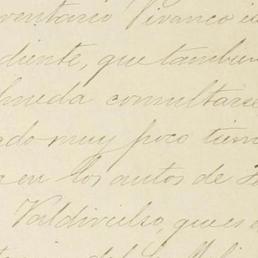 ventario Vivanco i
diente, que tambien
lmeda consultarse
ado muy poco tiem
a en los autos de
Valdivielso, que es